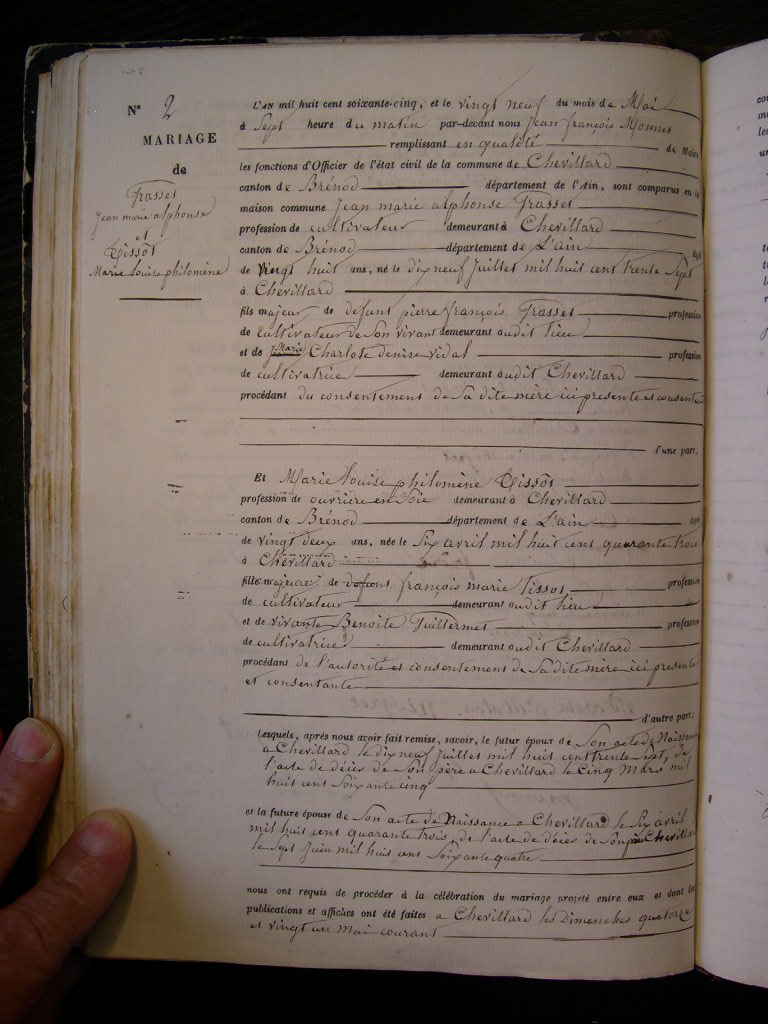 N° 2
MARIAGE
de
Grasset
Jean marie alphonse
et
Tissot
Marie Louise philomène
L'AN mil huit cent soixante-cinq, et le vingt neuf du mois de Mai
à Sept heure du matin par-devant nous Jean françois Monnet
remplissant en qualité de Maire
les fonctions d'Officier de l'état civil de la commune de Chevillard
canton de Brénod département de l'Ain, sont comparus en la
maison commune Jean marie alphonse Grasset
profession de cultivateur demeurant à Chevillard
canton de Brénod département de L'ain âgé
de Vingt huit ans, né le dix neuf Juillet mil huit cent trente Sept
à Chevillard
fils majeur de defunt pierre françois Grasset profession
de cultivateur de Son vivant demeurant audit lieu
et de Marie Charlote denise Vidal profession
de cultivatrice demeurant audit Chevillard
procédant du consentement de Sa dite mère ici presente et consentante
d'une part.
Et Marie Louise philomène Tissot
profession de ouvrière en Soie demeurant à Chevillard
canton de Brénod département de L'ain âgée
de vingt deux ans, née le Six avril mil huit cent quarante trois
à Chevillard
fille majeure de defunt françois marie Tissot profession
de cultivateur demeurant audit lieu
et de vivante Benoite Guillermet profession
de cultivatrice demeurant audit Chevillard
procédant de l'autorité et consentement de Sa dite mère ici presente
et consentante
d'autre part.
Lesquels, après nous avoir fait remise, savoir, le futur époux de Son acte de Naissance
a Chevillard le dix neuf Juillet mil huit cent trente Sept, de
l'acte de décès de Son père a Chevillard le Cinq Mars mil
huit cent Soixante cinq
et la future épouse de Son acte de Naissance a Chevillard le Six avril
mil huit cent quarante trois, de l'acte de décès de Son père Chevillard
le Sept Juin mil huit cent Soixante quatre
nous ont requis de procéder à la célébration du mariage projeté entre eux et dont les
publications et affiches ont été faites a Chevillard les Dimenches quatorze
et vingt un Mai courant